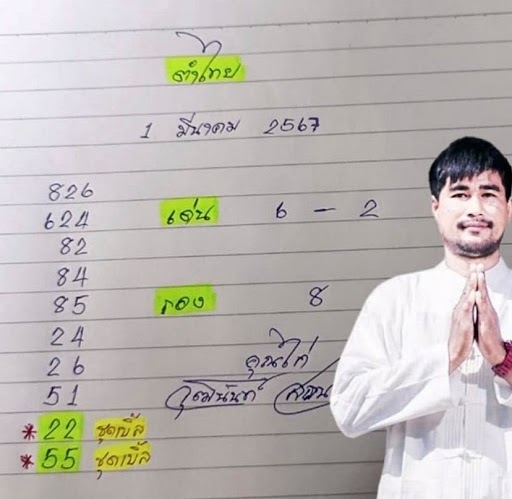 คำไทย
1 มีนาคม 2567
826
624 เด่น 6 - 2
82
84
85 รอง 8
24
26 คุณไก่
51
* 22 ชุดเบิ้ล
* 55 ชุดเบิ้ล